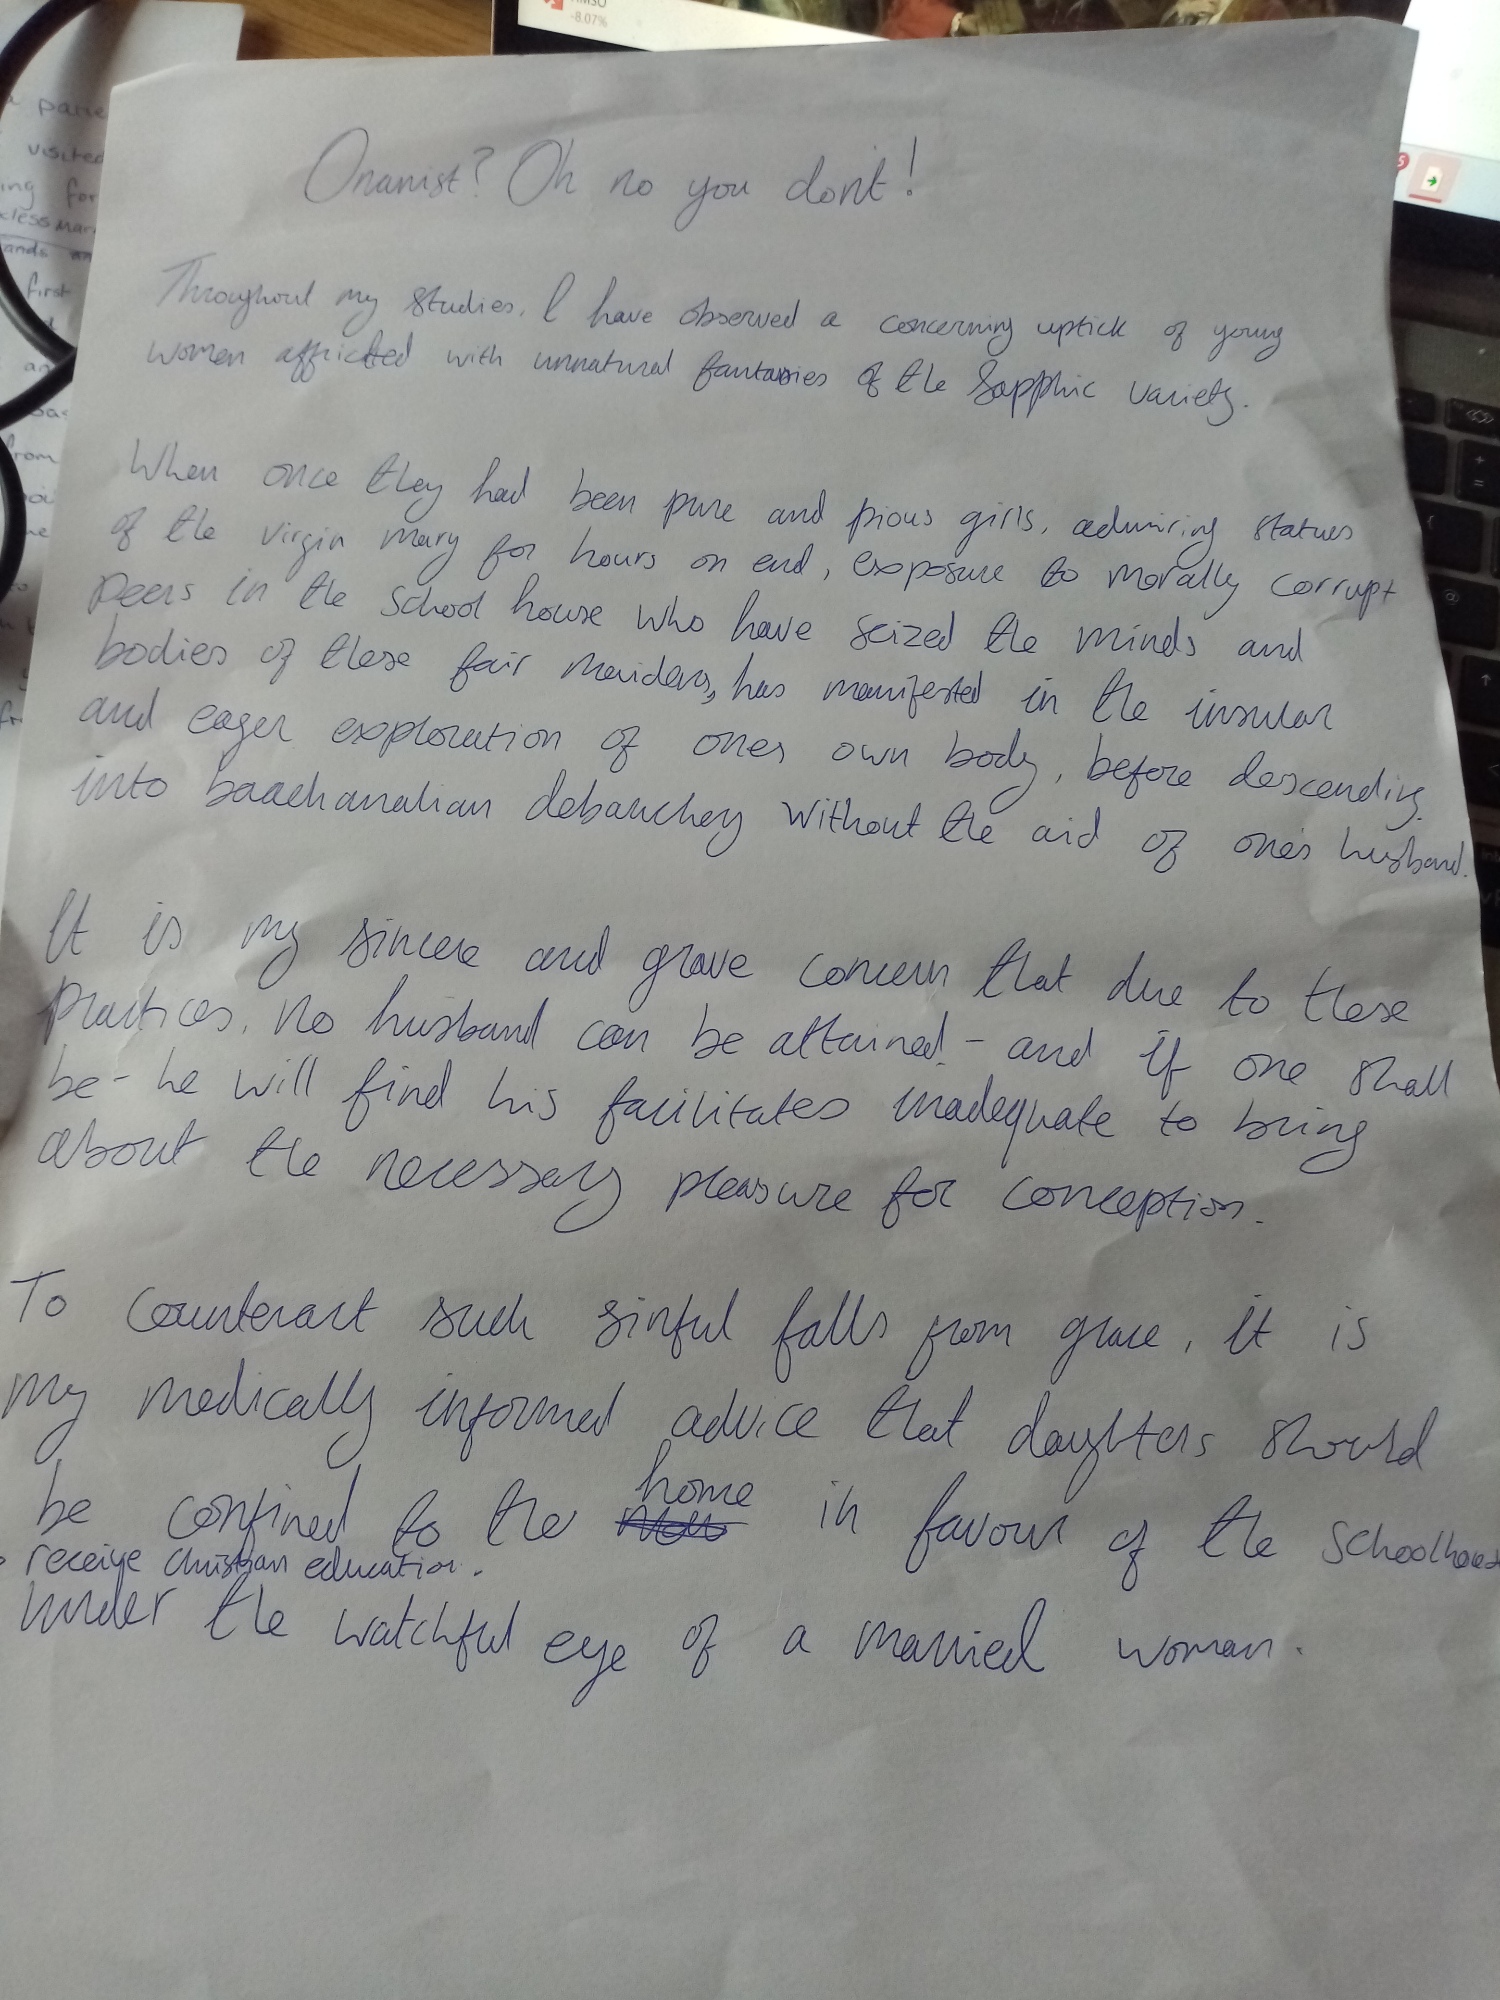 HMSO
-8.07%
Onanist? Oh no you don't!
Throughout my studies, I have observed a concerning uptick of young
women afflicted with unnatural fantasies of the Sapphic variety.
When once they had been pure and pious girls, admiring statues
of the virgin mary for hours on end, exposure to morally corrupt
peers in the school house who have seized the minds and
bodies of these fair maidens, has manifested in the insular
and eager exploration of ones own body, before descending
into baachanalian debauchey without the aid of one's husband.
It is my sincere and grave concern that due to these
practices, no husband can be attained - and if one shall
be - he will find his facilitates inadequate to bring
about the necessary pleasure for conception.
To counteract such sinful falls from grace, it is
my medically informed advice that daughters should
be confined to the home in favour of the schoolhouse
receive christian education.
under the watchful eye of a married woman.
visited
ing for
first